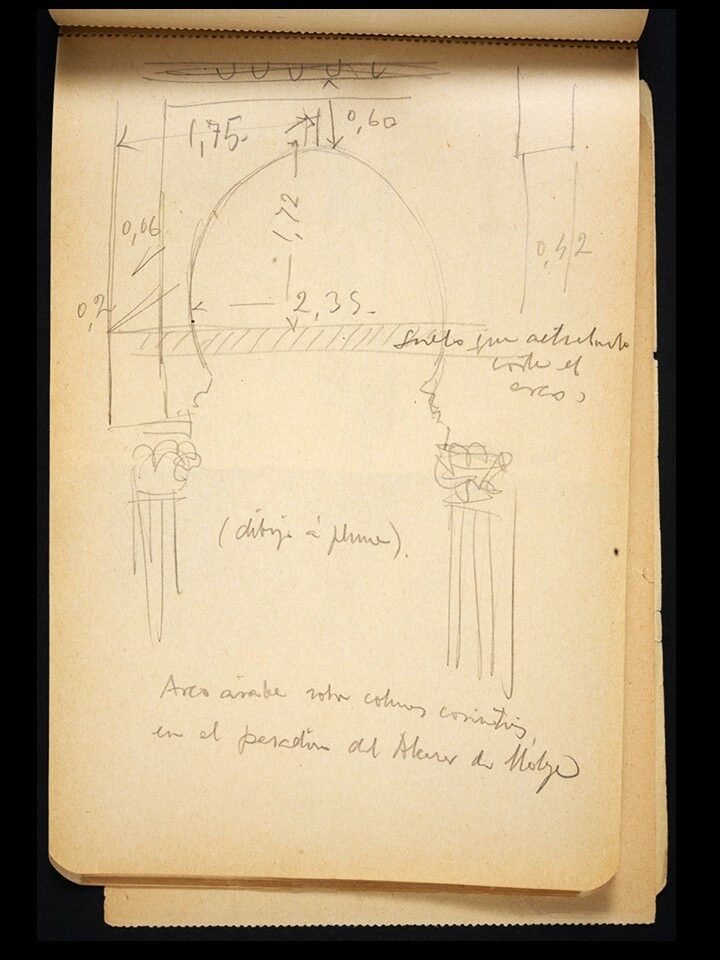 0,60
1,75.
1,72
0,06
0,42
0,2
2,35.
Suelo que
corta el
arco
(dibujo á pluma).
Arco árabe sobre colunas corintias
en el del Alcázar de